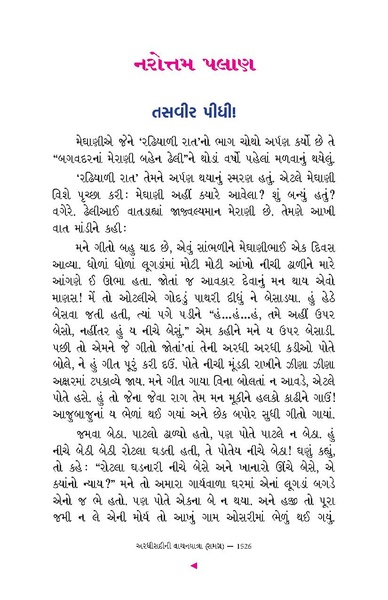 નરોત્તમ પલાણ
તસવીર પીધી!
મેઘાણીએ જેને ‘રઢિયાળી રાત’નો ભાગ ચોથો અર્પણ કર્યો છે તે
“બગવદરનાં મેરાણી બહેન ઢેલી”ને થોડાં વર્ષો પહેલાં મળવાનું થયેલું.
‘રઢિયાળી રાત’ તેમને અર્પણ થયાનું સ્મરણ હતું. એટલે મેઘાણી
વિશે પૃચ્છા કરી: મેઘાણી અહીં ક્યારે આવેલા? શું બન્યું હતું?
વગેરે. ઢેલીઆઈ વાતડાહ્યાં જાજ્વલ્યમાન મેરાણી છે. તેમણે આખી
વાત માંડીને કહી:
મને ગીતો બહુ યાદ છે, એવું સાંભળીને મેઘાણીભાઈ એક દિવસ
આવ્યા. ધોળાં ધોળાં લૂગડાંમાં મોટી મોટી આંખો નીચી ઢાળીને મારે
આંગણે ઈ ઊભા હતા. જોતાં જ આવકાર દેવાનું મન થાય એવો
માણસ! મેં તો ઓટલીએ ગોદડું પાથરી દીધું ને બેસાડ્યા. હું હેઠે
બેસવા જતી હતી, ત્યાં પગે પડીને “હં...હં...હં, તમે અહીં ઉપર
બેસો, નહીંતર હું ય નીચે બેસું.” એમ કહીને મને ય ઉપર બેસાડી.
પછી તો એમને જે ગીતો જોતાં’તાં તેની અરધી અરધી કડીઓ પોતે
બોલે, ને હું ગીત પૂરું કરી દઉં. પોતે નીચી મૂંડકી રાખીને ઝીણા ઝીણા
અક્ષરમાં ટપકાવ્યે જાય. મને ગીત ગાયા વિના બોલતાં ન આવડે, એટલે
પોતે હસે. હું તો જેના જેવા રાગ તેમ મન મૂકીને હલકો કાઢીને ગાઉં!
આજુબાજુનાં ય ભેળાં થઈ ગયાં અને છેક બપોર સુધી ગીતો ગાયાં.
જમવા બેઠા. પાટલો ઢાળ્યો હતો, પણ પોતે પાટલે ન બેઠા. હું
નીચે બેઠી બેઠી રોટલા ઘડતી હતી, તે પોતેય નીચે બેઠા! ઘણું કહ્યું,
તો કહે: “રોટલા ઘડનારી નીચે બેસે અને ખાનારો ઊંચે બેસે, એ
ક્યાંનો ન્યાય?” મને તો અમારા ગાર્યવાળા ઘરમાં એનાં લૂગડાં બગડે
એનો જ ભે હતો. પણ પોતે એકના બે ન થયા. અને હજી તો પૂરા
જમી ન લે એની મોર્ય તો આખું ગામ ઓસરીમાં ભેળું થઈ ગયું.
અરધીસદીની વાચનયાત્રા (સમગ્ર) — 1526